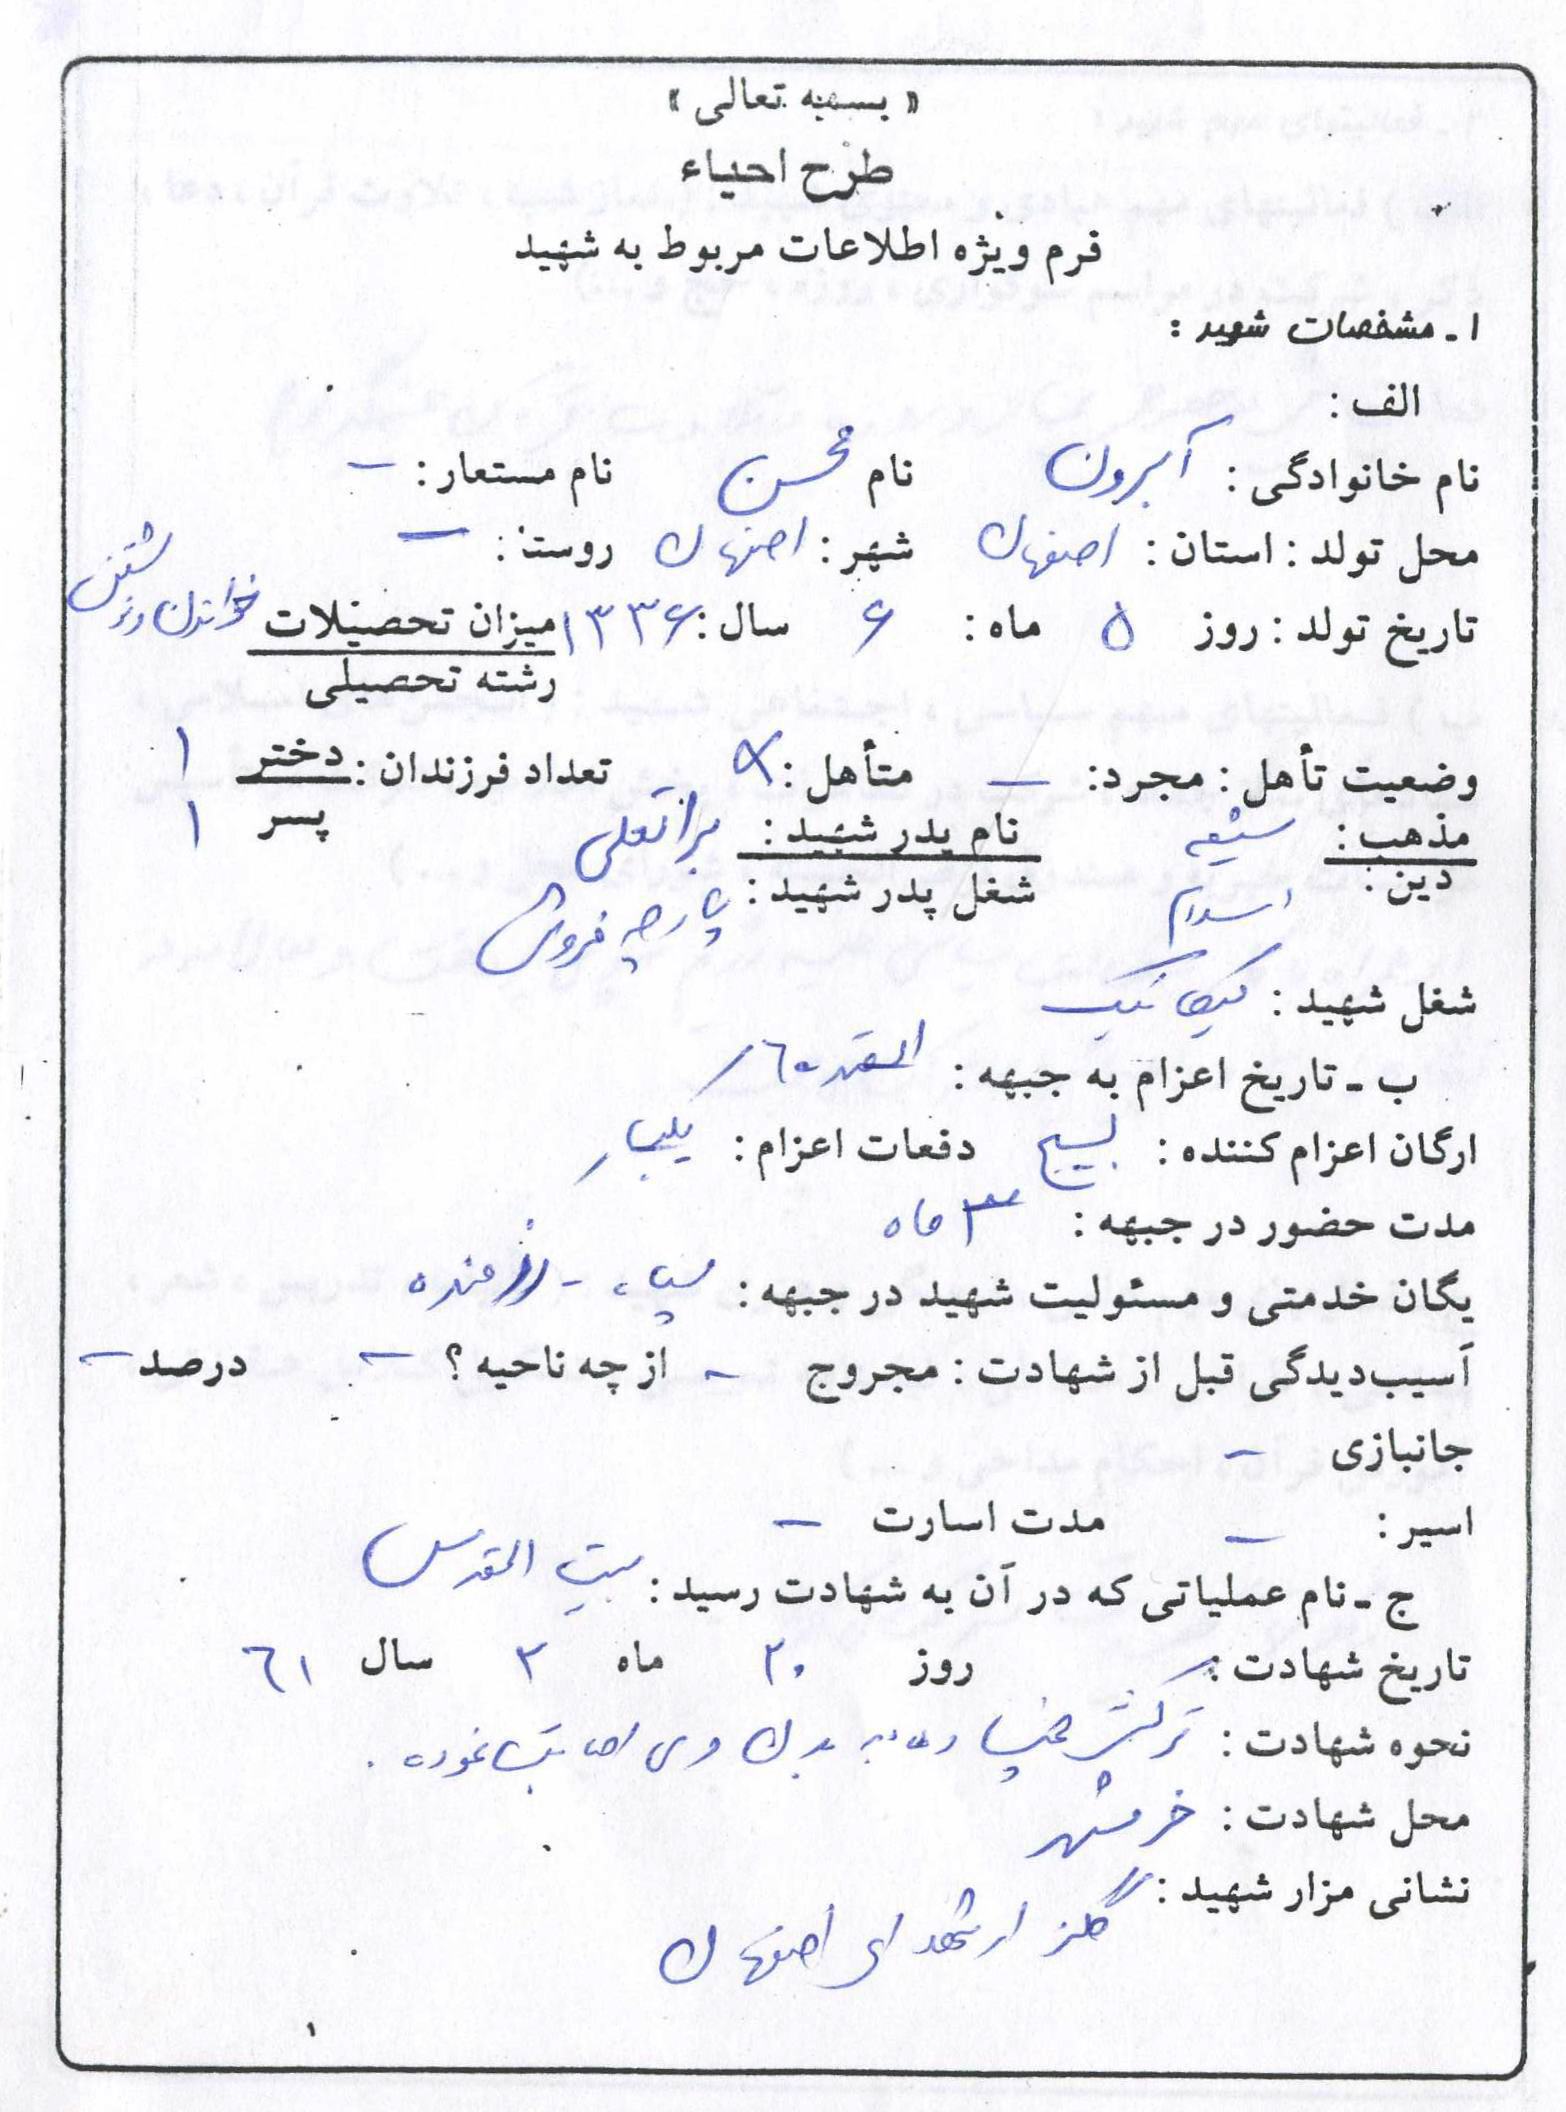 « بسمه تعالی »
طرح احیاء
فرم ویژه اطلاعات مربوط به شهید
۱ ـ مشخصات شهید :
الف :
نام خانوادگی : آبرون نام محسن نام مستعار : –
محل تولد : استان : اصفهان شهر : اصفهان روستا : –
تاریخ تولد : روز ۵ ماه : ۶ سال : ۱۳۳۶ میزان تحصیلات خواندن و نوشتن
رشته تحصیلی
وضعیت تأهل : مجرد : – متأهل : × تعداد فرزندان : دختر ۱
پسر ۱
مذهب : شیعه نام پدر شهید : براتعلی
دین : اسلام شغل پدر شهید : پارچه فروش
شغل شهید : مکانیک
ب ـ تاریخ اعزام به جبهه : اسفند ۶۰
ارگان اعزام کننده : بسیج دفعات اعزام : یکبار
مدت حضور در جبهه : ۳ ماه
یگان خدمتی و مسئولیت شهید در جبهه : سپاه - رزمنده
آسیب‌دیدگی قبل از شهادت : مجروح – از چه ناحیه ؟ – درصد –
جانبازی –
اسیر : – مدت اسارت –
ج ـ نام عملیاتی که در آن به شهادت رسید : بیت المقدس
تاریخ شهادت : روز ۲۰ ماه ۲ سال ۶۱
نحوه شهادت : ترکش خمپاره به بدن وی اصابت نموده .
محل شهادت : خرمشهر
نشانی مزار شهید :
گلزار شهدای اصفهان
۱